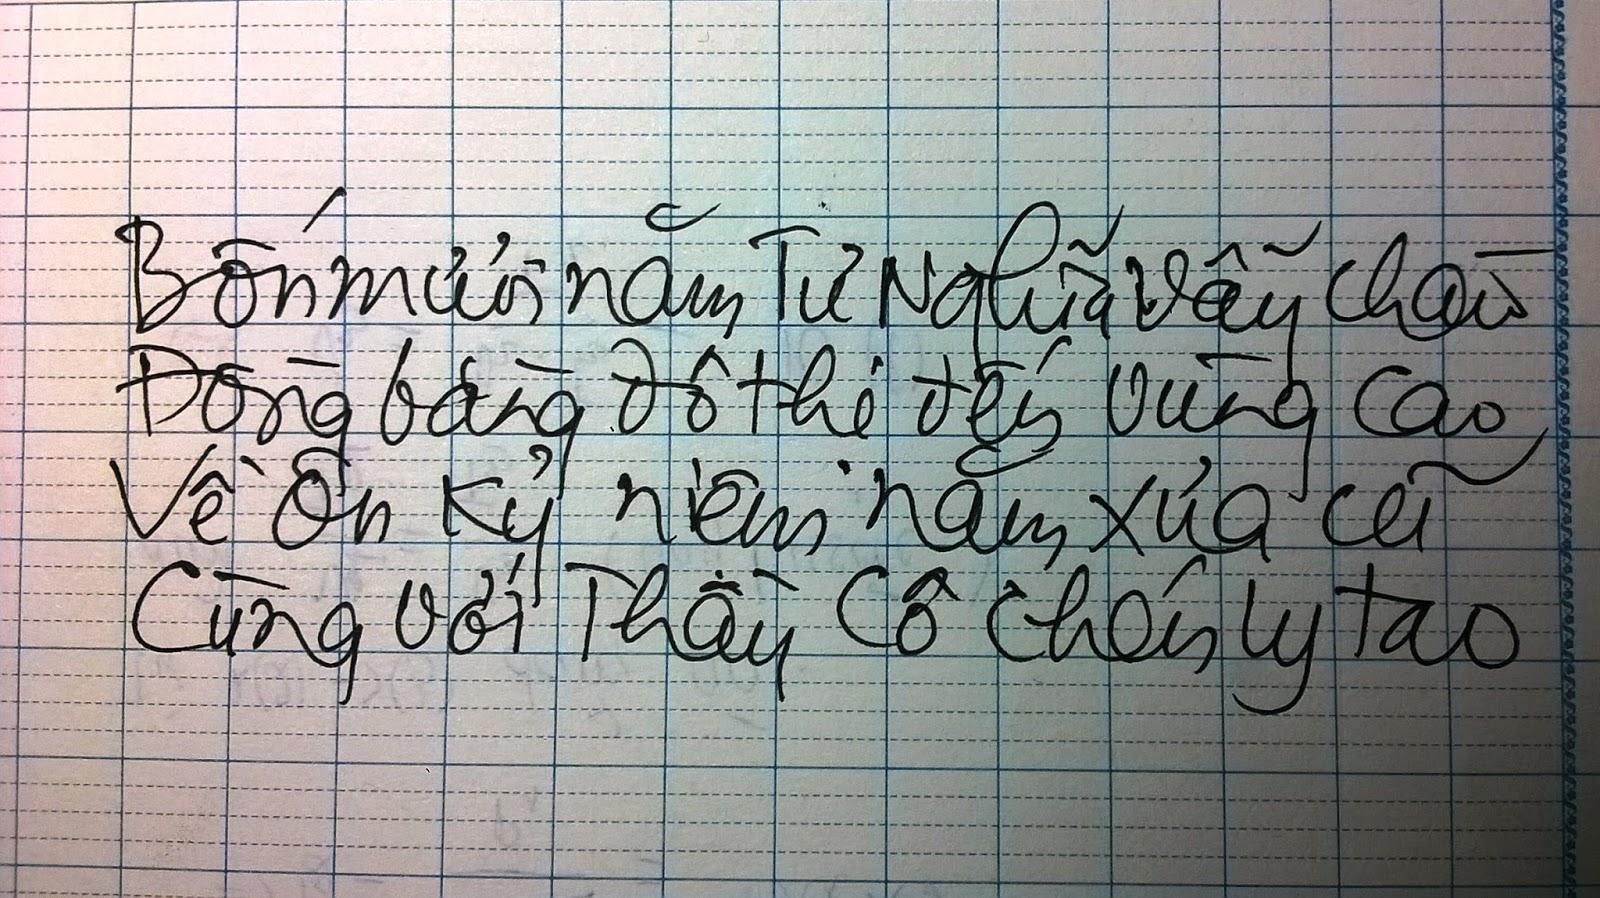 Bốn mươi năm Tư Nghĩa vẫy chào
Đồng bằng đô thị đến vùng cao
Về ôn kỷ niệm năm xưa cũ
Cùng với Thầy Cô chốn ly tao